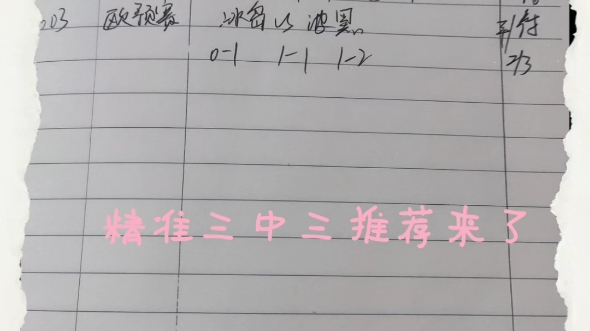 203 欧预赛 冰岛 VS 波黑 平/负
0-1 1-1 1-2 2/3
精准三中三推荐来了